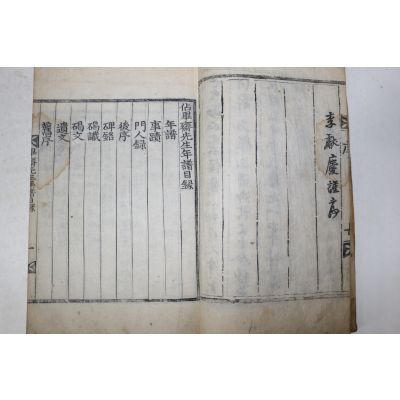 序
十
李獻慶謹序
佔畢齋先生年譜目錄
年譜
事蹟
門人錄
後序
碑銘
碣識
碣文
遺文
舊序
畢齋先生年譜目錄
一